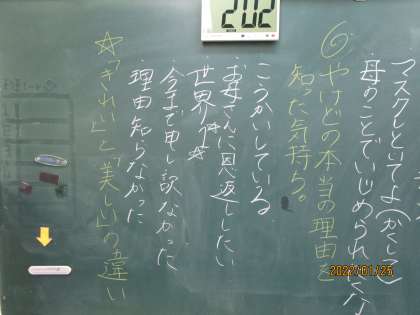 202
マスクしといてよ(かくして)
母のことでいじめられたくな
⑥やけどの本当の理由を
知った気持ち。
こうかいしている
お母さんに恩返ししたい
世界1☆
今まで申し訳なかった
理由知らなかった
☆「きれい」と「美しい」の違い
2022/01/25